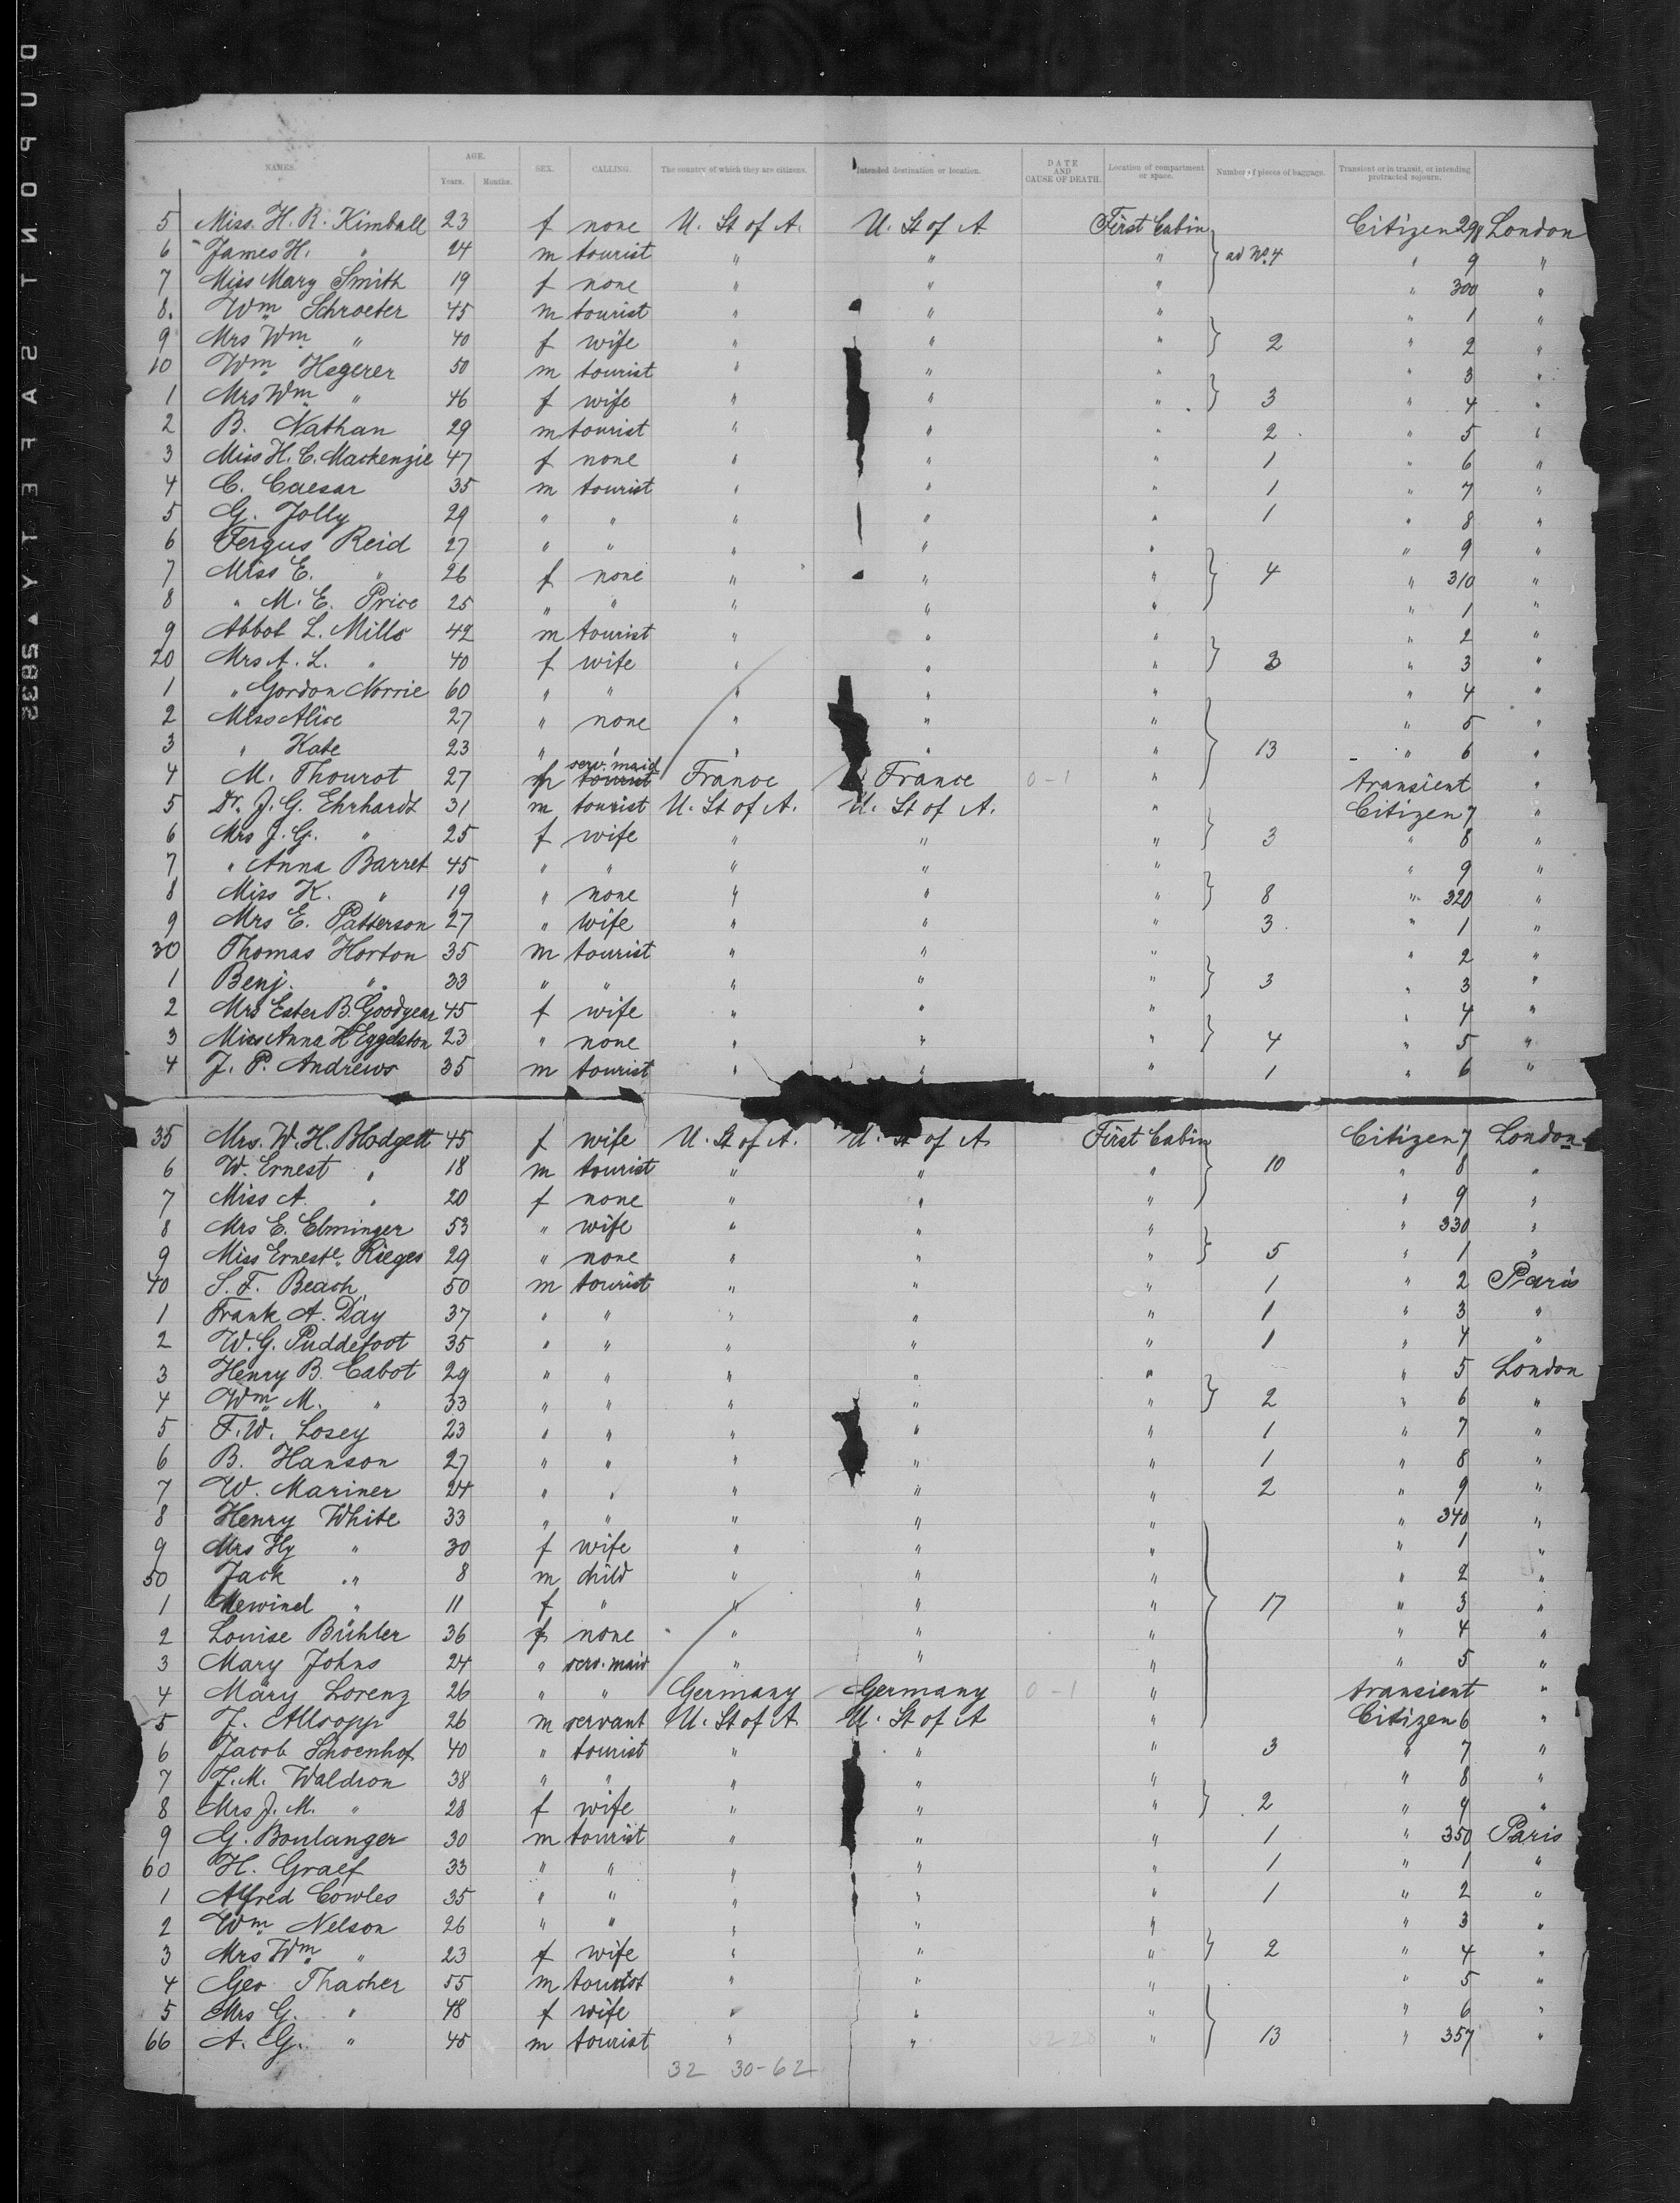 NAMES. AGE. Years. Months. SEX. CALLING. The country of which they are citizens. Intended destination or location. DATE AND CAUSE OF DEATH. Location of compartment or space. Number of pieces of baggage. Transient or in transit, or intending protracted sojourn.
5 Miss. H. R. Kimball 23 f none U. St of A. U. St of A First Cabin Citizen 298 London
6 James H. " 24 m tourist " " " ad No. 4 " 9 "
7 Miss Mary Smith 19 f none " " " " 300 "
8. Wm Schroeter 45 m tourist " " " " 1 "
9 Mrs Wm " 40 f wife " " " 2 " 2 "
10 Wm Hegerer 50 m tourist " " " " 3 "
1 Mrs Wm " 46 f wife " " " 3 " 4 "
2 B. Nathan 29 m tourist " " " 2 " 5 "
3 Miss H. C. Mackenzie 47 f none " " " 1 " 6 "
4 C. Caesar 35 m tourist " " " 1 " 7 "
5 G. Jolly 29 " " " " " 1 " 8 "
6 Fergus Reid 27 " " " " " " 9 "
7 Miss E. " 26 f none " " " 4 " 310 "
8 " M. E. Price 25 " " " " " " 1 "
9 Abbot L. Mills 42 m tourist " " " " 2 "
20 Mrs A. L. " 40 f wife " " " 3 " 3 "
1 " Gordon Norrie 60 " " " " " " 4 "
2 Miss Alice 27 " none " " " " 5 "
3 " Kate 23 " " " " " 13 " 6 "
4 M. Thourot 27 f serv. maid tourist France France 0-1 " transient "
5 Dr. J. G. Ehrhardt 31 m tourist U. St of A. U. St of A. " Citizen 7 "
6 Mrs J. G. " 25 f wife " " " 3 " 8 "
7 " Anna Barret 45 " " " " " " 9 "
8 Miss K. " 19 " none " " " 8 " 320 "
9 Mrs E. Patterson 27 " wife " " " 3 " 1 "
30 Thomas Horton 35 m tourist " " " " 2 "
1 Benj. " 33 " " " " " 3 " 3 "
2 Mrs Ester B. Goodyear 45 f wife " " " " 4 "
3 Miss Anna H Eggelston 23 " none " " " 4 " 5 "
4 J. P. Andrews 35 m tourist " " " 1 " 6 "
35 Mrs. W. H. Blodgett 45 f wife U. St of A. U. St of A. First Cabin Citizen 7 London
6 W. Ernest " 18 m tourist " " " 10 " 8 "
7 Miss A. " 20 f none " " " " 9 "
8 Mrs E. Elminger 53 " wife " " " " 330 "
9 Miss Erneste Rieges 29 " none " " " 5 " 1 "
40 S. F. Beach 50 m tourist " " " 1 " 2 Paris
1 Frank A. Day 37 " " " " " 1 " 3 "
2 W. G. Puddefoot 35 " " " " " 1 " 4 "
3 Henry B. Cabot 29 " " " " " " 5 London
4 Wm M. " 33 " " " " " 2 " 6 "
5 F. W. Losey 23 " " " " " 1 " 7 "
6 B. Hanson 27 " " " " " 1 " 8 "
7 W. Mariner 24 " " " " " 2 " 9 "
8 Henry White 33 " " " " " " 340 "
9 Mrs Hy " 30 f wife " " " " 1 "
50 Jack " 8 m child " " " " 2 "
1 " 11 f " " " " 17 " 3 "
2 Louise Bühler 36 f none " " " " 4 "
3 Mary Johns 24 " serv. maid " " " " 5 "
4 Mary Lorenz 26 " " Germany Germany 0-1 " transient "
5 J. Allsopp 26 m servant U. St of A U. St of A " Citizen 6 "
6 Jacob Schoenhof 40 " tourist " " " 3 " 7 "
7 J. M. Waldron 38 " " " " " " 8 "
8 Mrs J. M. " 28 f wife " " " 2 " 9 "
9 G. Boulanger 30 m tourist " " " 1 " 350 Paris
60 H. Graef 33 " " " " " 1 " 1 "
1 Alfred Cowles 35 " " " " " 1 " 2 "
2 Wm Nelson 26 " " " " " " 3 "
3 Mrs Wm " 23 f wife " " " 2 " 4 "
4 Geo Thacher 55 m tourist " " " " 5 "
5 Mrs G. " 48 f wife " " " " 6 "
66 A. G. " 45 m tourist " " " 13 " 357 "
32 30-62
DUPONT SAFETY ▲ 5832